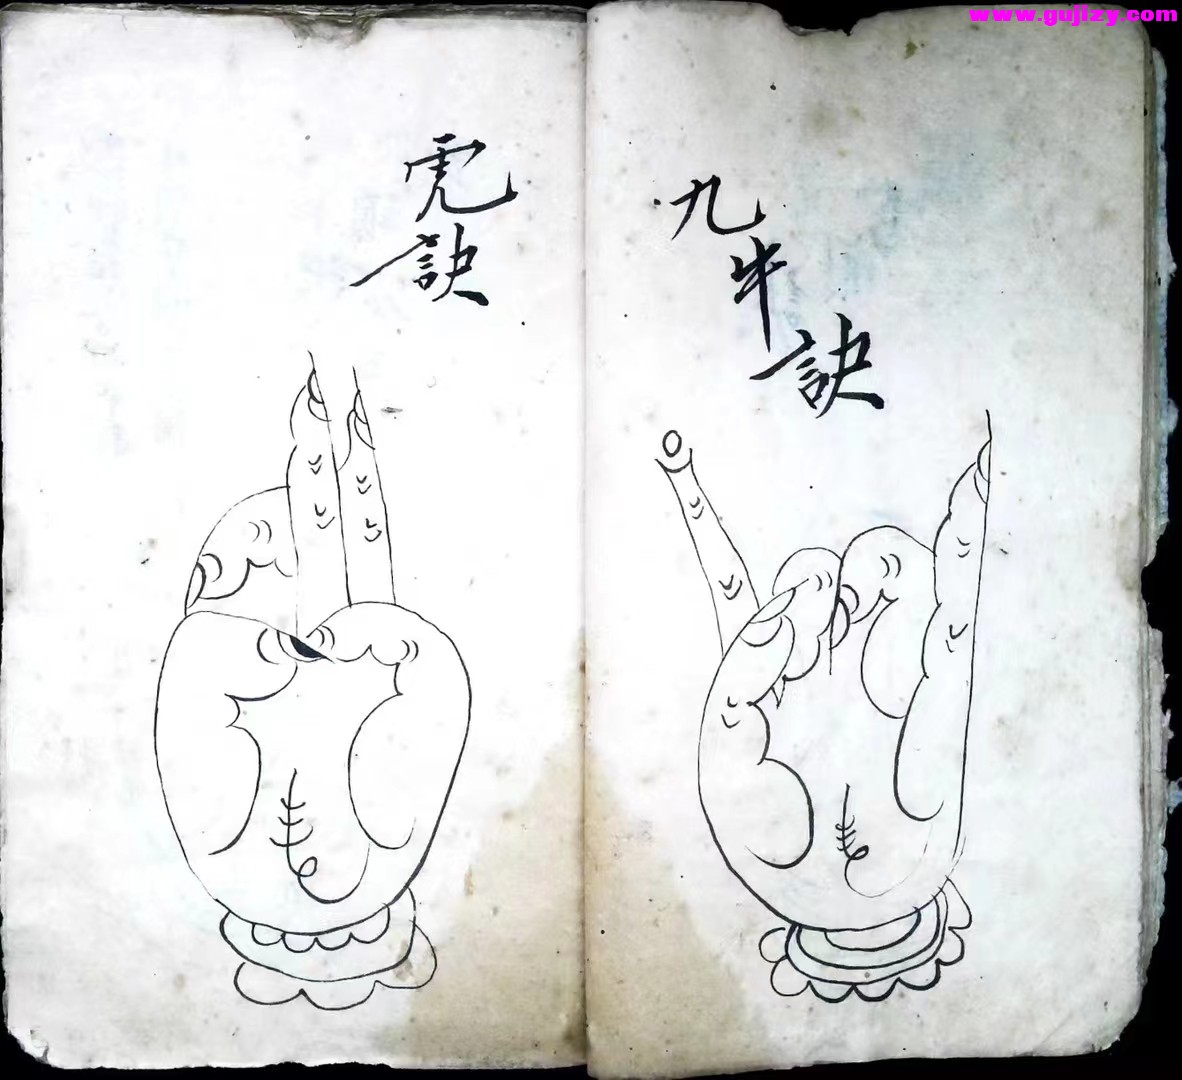 www.gujizy.com
九牛訣
虎訣